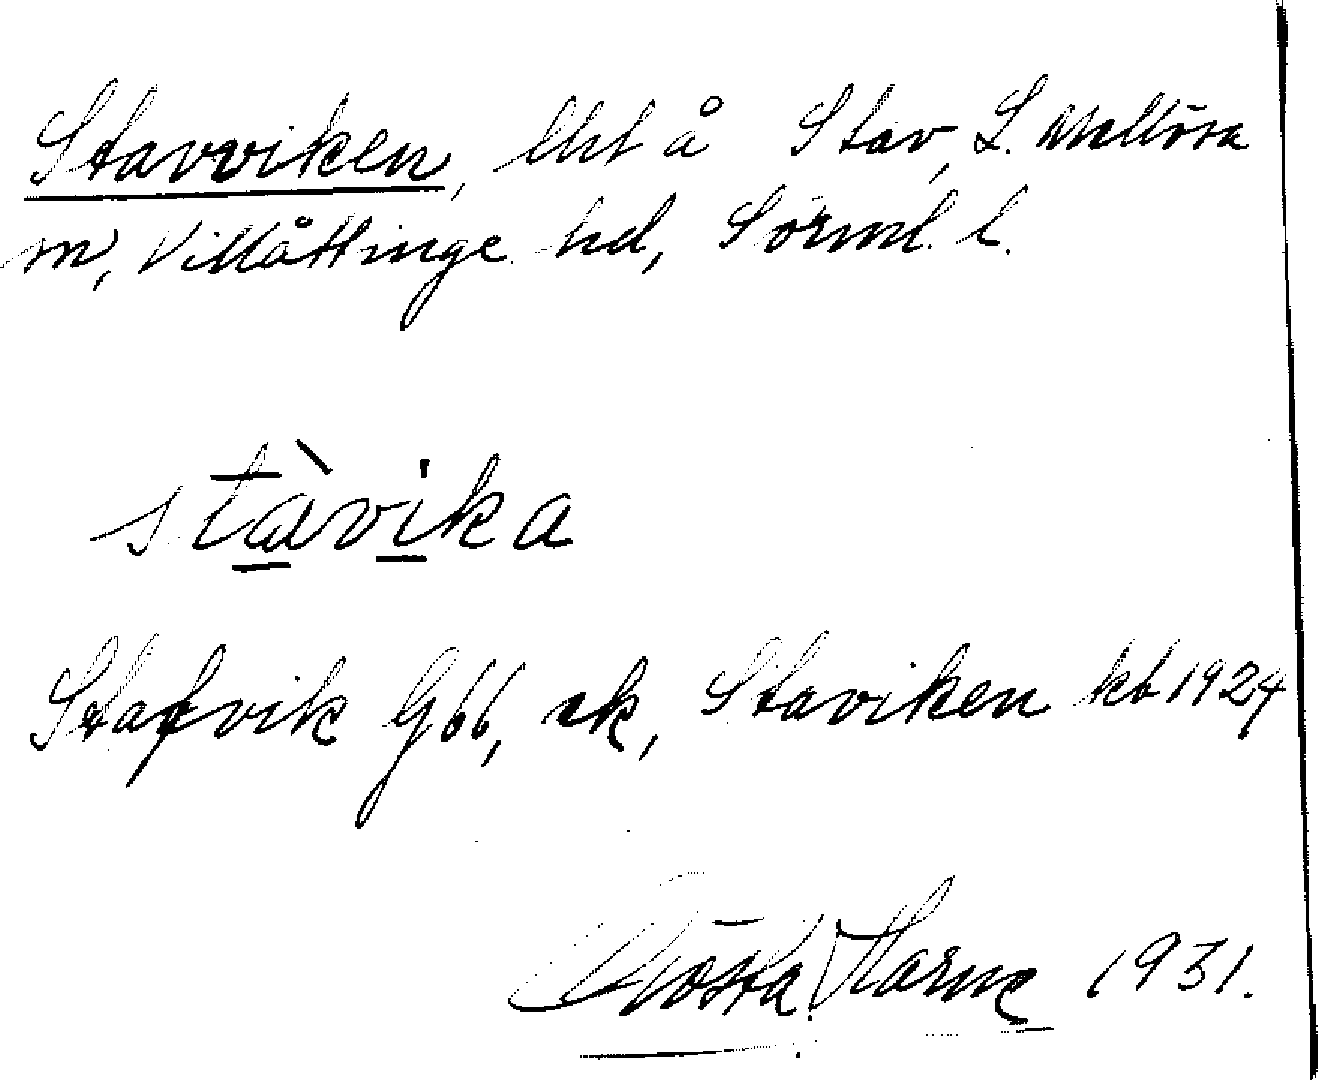 Stavviken, lht å Stav, L. Mellösa
sn, Villåttinge hd, Sörml. l.
stàvika
Stafvik G66, ek, Staviken kb 1924
Gösta Harne 1931.